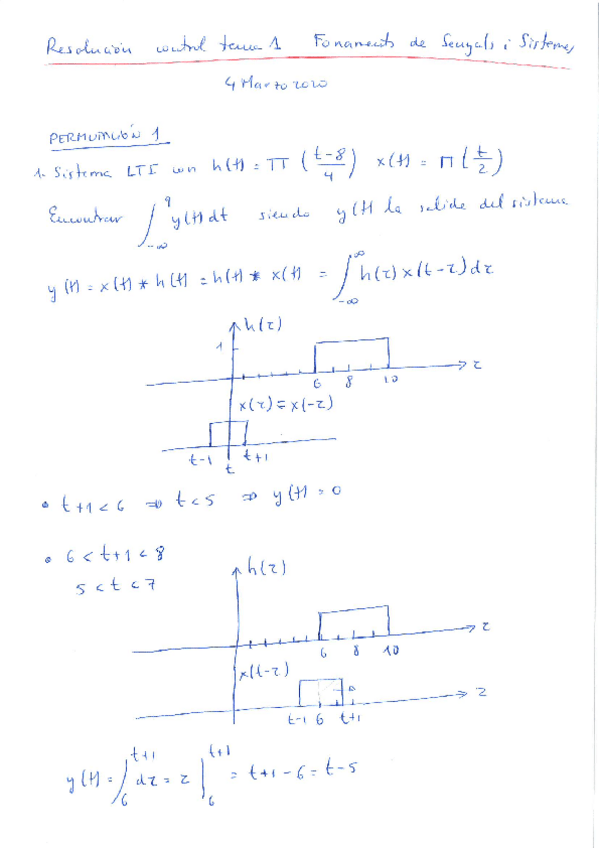 Resolución control tema 1 Fonaments de Senyals i Sistemes
4 Marzo 2020
PERMUTACIÓN 1
1. Sistema LTI con h(t) = Π (t-8/4) x(t) = Π (t/2)
Encontrar ∫_{-∞}^{9} y(t) dt siendo y(t) la salida del sistema
y(t) = x(t) * h(t) = h(t) * x(t) = ∫_{-∞}^{∞} h(τ) x(t-τ) dτ
h(τ)
1
6 8 10 τ
x(τ) = x(-τ)
t-1 t t+1
• t+1 < 6 ⇒ t < 5 ⇒ y(t) = 0
• 6 < t+1 < 8
5 < t < 7
h(τ)
6 8 10 τ
x(t-τ)
t-1 6 t+1 τ
y(t) = ∫_{6}^{t+1} dτ = τ |_{6}^{t+1} = t+1-6 = t-5